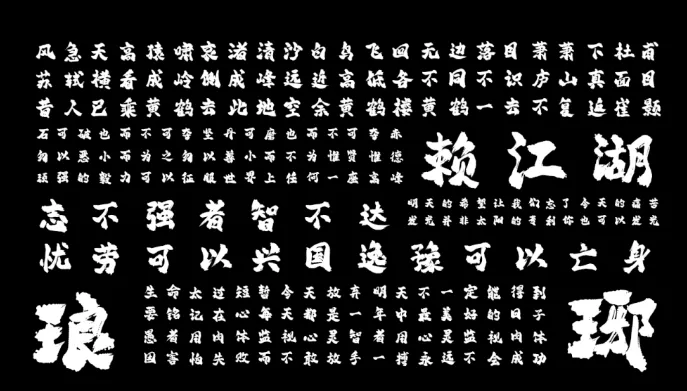 风急天高猿啸哀渚清沙白鸟飞回无边落日萧萧下杜甫
苏轼横看成岭侧成峰远近高低各不同不识庐山真面目
昔人已乘黄鹤去此地空余黄鹤楼黄鹤一去不复返崔颢
石可破也而不可夺坚丹可磨也而不可夺赤
勿以恶小而为之勿以善小而不为惟贤惟德
顽强的毅力可以征服世界上任何一座高峰
赖江湖
志不强者智不达
明天的希望让我们忘了今天的痛苦
发光并非太阳的专利你也可以发光
忧劳可以兴国逸豫可以亡身
琅
生命太过短暂今天放弃明天不一定能得到
要铭记在心每天都是一年中最美好的日子
愚者用肉体监视心灵智者用心灵监视肉体
因害怕失败而不敢放手一搏永远不会成功
琊